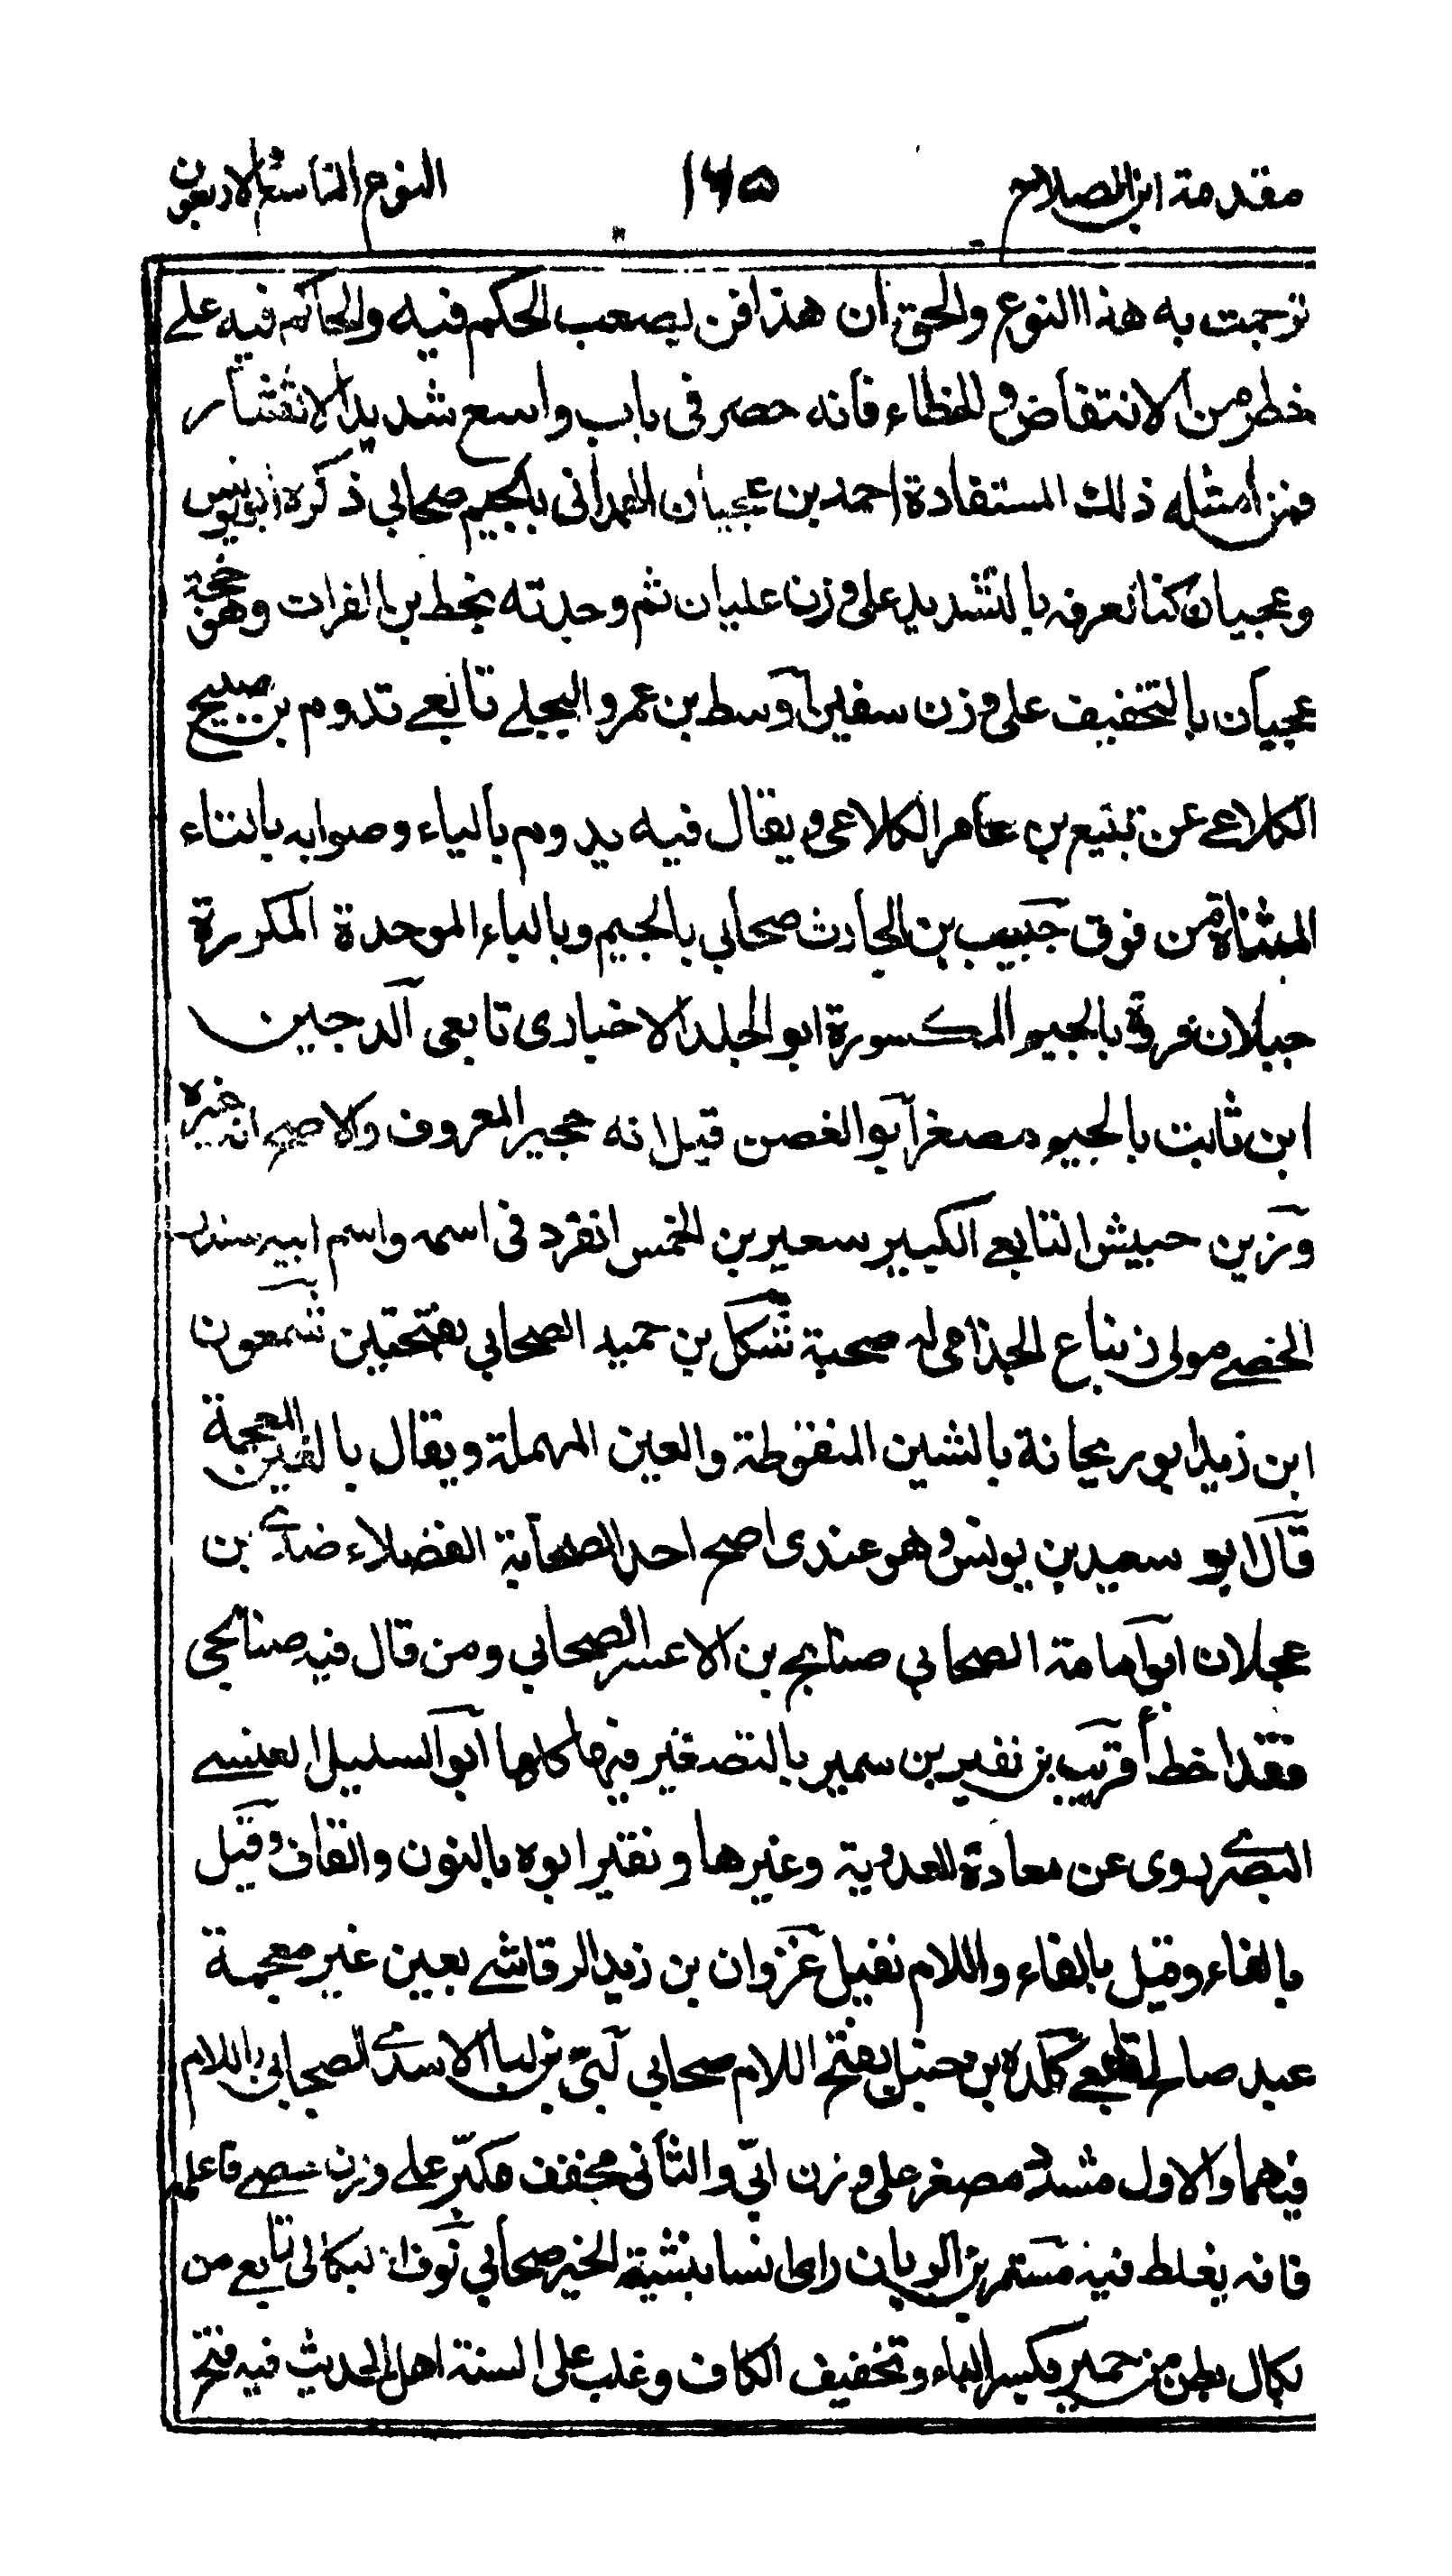 مقدمة ابن الصلاح ١٦٥ النوع التاسع والاربعون
ترجمت به هذا النوع والحق ان هذا فن يصعب الحكم فيه والحاكم فيه على
خطر من الانتقاض و الخطاء فانه حصر فى باب واسع شديد الانتشار
فمن امثله ذلك المستفادة احمد بن عجيان الهمدانى بالجيم صحابي ذكره ابن يونس
وعجيان كنا نعرفه بالتشديد على وزن عليان ثم وجدته بخط بن الفرات وهو حجة
عجيان بالتخفيف على وزن سفيان اوسط بن عمرو البجلے تابعے تدوم بن صبيح
الكلاعے عن تبيع بن عامر الكلاعى ويقال فيه يدوم بالياء وصوابه بالتاء
المثناة من فوق جبيب بن الحارث صحابي بالجيم وبالباء الموحدة المكررة
جيلان بن فروة بالجيم المكسورة ابو الجلد الاخبارى تابعى الدجين
ابن ثابت بالجيم مصغرا ابو الغصن قيل انه جحير المعروف والاصح انه غيره
وزر بن حبيش التابعے الكبير سعير بن الخمس انفرد فى اسمه واسم ابيه سندر
الخصے مولى زنباع الجذامى له صحبة شكل بن حميد الصحابي بفتحتين شمعون
ابن زيد ابو ريحانة بالشين المنقوطة والعين المهملة ويقال بالغين المعجمة
قال ابو سعيد بن يونس وهو عندى اصح احد الصحابة الفضلاء صدى بن
عجلان ابو امامة الصحابي صنابح بن الاعسر الصحابي ومن قال فيه صنابحى
فقد اخطأ قريب بن نفير بن سمير بالتصغير فيها كلها ابو السليل العنسے
البصرے روى عن معاذة العدوية وغيرها و نقير ابوه بالنون والقاف وقيل
بالفاء وقيل بالفاء واللام نفيل غزوان بن زيد الرقاشے بعين غير معجمة
عبد صالح تابعے كلدة بن حنبل بفتح اللام صحابي لبى بن لبا الاسدے الصحابي باللام
فيهما والاول مشدد مصغر على وزن ابى والثانى مخفف مكبر علے وزن عصے فاعلمه
فانه يغلط فيه مستمر بن الريان راى انسا نبشية الخير صحابي نوف البكالى تابعے من
بكال بطن من حمير بكسر الباء وتخفيف الكاف وغلب على السنة اهل الحديث فيه فتح